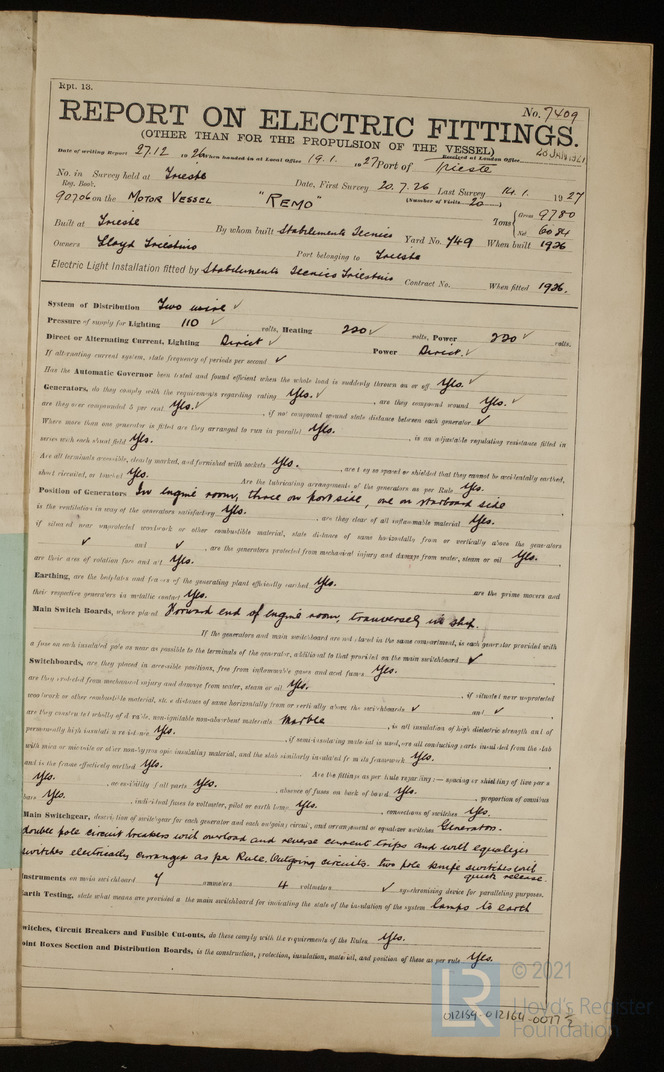 Rpt. 13.
No. 7409
REPORT ON ELECTRIC FITTINGS.
(OTHER THAN FOR THE PROPULSION OF THE VESSEL)
Date of writing Report 27.12 1926 When handed in at Local Office 19.1. 1927 Port of Trieste Received at London Office
No. in Reg. Book. Survey held at Trieste Date, First Survey 20.7.26 Last Survey 14.1. 1927
(Number of Visits 20)
90706 on the MOTOR VESSEL "REMO" Tons { Gross 9780 Net 6084
Built at Trieste By whom built Stabilimento Tecnico Yard No. 749 When built 1926
Owners Lloyd Triestino Port belonging to Trieste
Electric Light Installation fitted by Stabilimento Tecnico Triestino Contract No. When fitted 1926.
System of Distribution Two wire ✓
Pressure of supply for Lighting 110 ✓ volts, Heating 220 ✓ volts, Power 220 ✓ volts.
Direct or Alternating Current, Lighting Direct ✓ Power Direct. ✓
If alternating current system, state frequency of periods per second ✓
Has the Automatic Governor been tested and found efficient when the whole load is suddenly thrown on or off Yes. ✓
Generators, do they comply with the requirements regarding rating Yes. ✓ , are they compound wound Yes. ✓
are they over compounded 5 per cent. Yes. ✓ , if not compound wound state distance between each generator ✓
Where more than one generator is fitted are they arranged to run in parallel Yes. , is an adjustable regulating resistance fitted in
series with each shunt field Yes.
Are all terminals accessible, clearly marked, and furnished with sockets Yes. , are they so spaced or shielded that they cannot be accidentally earthed,
short circuited, or touched Yes. Are the lubricating arrangements of the generators as per Rule Yes.
Position of Generators In engine room, three on port side, one on starboard side
is the ventilation in way of the generators satisfactory Yes. , are they clear of all inflammable material Yes.
if situated near unprotected woodwork or other combustible material, state distance of same horizontally from or vertically above the generators
✓ and ✓ , are the generators protected from mechanical injury and damage from water, steam or oil Yes.
are their axes of rotation fore and aft Yes.
Earthing, are the bedplates and frames of the generating plant efficiently earthed Yes. are the prime movers and
their respective generators in metallic contact Yes.
Main Switch Boards, where placed Forward end of engine room, transversely in ship.
If the generators and main switchboard are not placed in the same compartment, is each generator provided with
a fuse on each insulated pole as near as possible to the terminals of the generator, additional to that provided on the main switchboard ✓
Switchboards, are they placed in accessible positions, free from inflammable gases and acid fumes Yes.
are they protected from mechanical injury and damage from water, steam or oil Yes. , if situated near unprotected
woodwork or other combustible material, state distance of same horizontally from or vertically above the switchboards ✓ and ✓
are they constructed wholly of durable, non-ignitable non-absorbent materials Marble , is all insulation of high dielectric strength and of
permanently high insulation resistance Yes. , if semi-insulating material is used, are all conducting parts insulated from the slab
with mica or micanite or other non-hygroscopic insulating material, and the slab similarly insulated from its framework Yes.
and is the frame effectively earthed Yes. Are the fittings as per Rule regarding:— spacing or shielding of live parts
Yes. , accessibility of all parts Yes. , absence of fuses on back of board Yes. , proportion of omnibus
bars Yes. , individual fuses to voltmeter, pilot or earth lamp Yes. , connections of switches Yes.
Main Switchgear, description of switchgear for each generator and each outgoing circuit, and arrangement of equalizer switches Generators.
double pole circuit breakers with overload and reverse current trips and with equalizer
switches electrically arranged as per Rule. Outgoing circuits. two pole knife switches with
quick release
Instruments on main switchboard 7 ammeters 4 voltmeters ✓ synchronising device for paralleling purposes.
Earth Testing, state what means are provided at the main switchboard for indicating the state of the insulation of the system lamps to earth
Switches, Circuit Breakers and Fusible Cut-outs, do these comply with the requirements of the Rules Yes.
Joint Boxes Section and Distribution Boards, is the construction, protection, insulation, material, and position of these as per rule Yes.
© 2021
Lloyd's Register
Foundation
LR
012159-012164-0077 ½